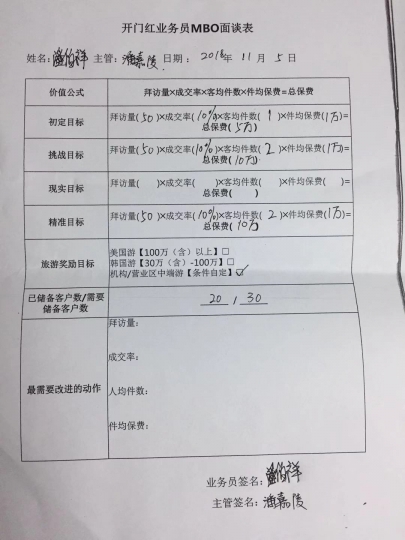 开门红业务员MBO面谈表
姓名: 主管:潘嘉陵 日期: 2018年 11月 5日
价值公式 拜访量×成交率×客均件数×件均保费=总保费
初定目标 拜访量(50)×成交率(10%)×客均件数( 1 )×件均保费(1万)=
总保费(5万)
挑战目标 拜访量(50)×成交率(10%)×客均件数( 2 )×件均保费(1万)=
总保费(10万)
现实目标 拜访量( )×成交率( )×客均件数( )×件均保费( )=
总保费( )
精准目标 拜访量(50)×成交率(10%)×客均件数( 2 )×件均保费(1万)=
总保费(10万)
旅游奖励目标 美国游【100万（含）以上】□
韩国游【30万（含）-100万】□
机构/营业区中端游【条件自定】☑
已储备客户数/需要
储备客户数 20 / 30
最需要改进的动作 拜访量：
成交率：
人均件数：
件均保费：
业务员签名：
主管签名：潘嘉陵